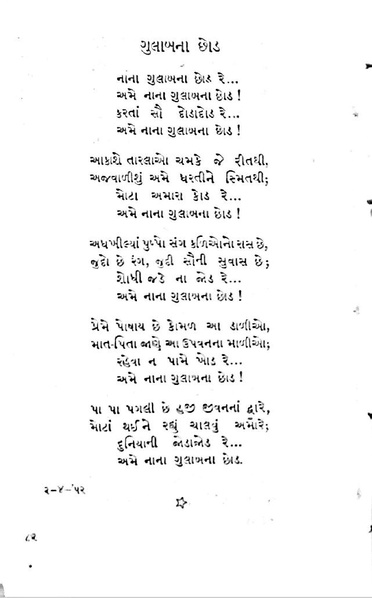 ગુલાબના છોડ
નાના ગુલાબના છોડ રે...
અમે નાના ગુલાબના છોડ !
કરતાં સૌ દોડાદોડ રે...
અમે નાના ગુલાબના છોડ !
આકાશે તારલાઓ ચમકે જે રીતથી,
અજવાળીશું અમે ધરતીને સ્મિતથી;
મોટા અમારા કોડ રે...
અમે નાના ગુલાબના છોડ !
અધખીલ્યાં પુષ્પો સંગ કળિઓનો રાસ છે,
જુદો છે રંગ, જુદી સૌની સુવાસ છે;
શોધી જડે ના જોડ રે...
અમે નાના ગુલાબના છોડ !
પ્રેમે પોષાય છે કોમળ આ ડાળીઓ,
માત-પિતા જાણે આ ઉપવનના માળીઓ;
રહેવા ન પામે ખોડ રે...
અમે નાના ગુલાબના છોડ !
પા પા પગલી છે હજી જીવનનાં દ્વારે,
મોટાં થઈને રહ્યું ચાલવું અમોરે;
દુનિયાની જોડાજોડ રે...
અમે નાના ગુલાબના છોડ.
૨-૪-'૫૨
૮૨